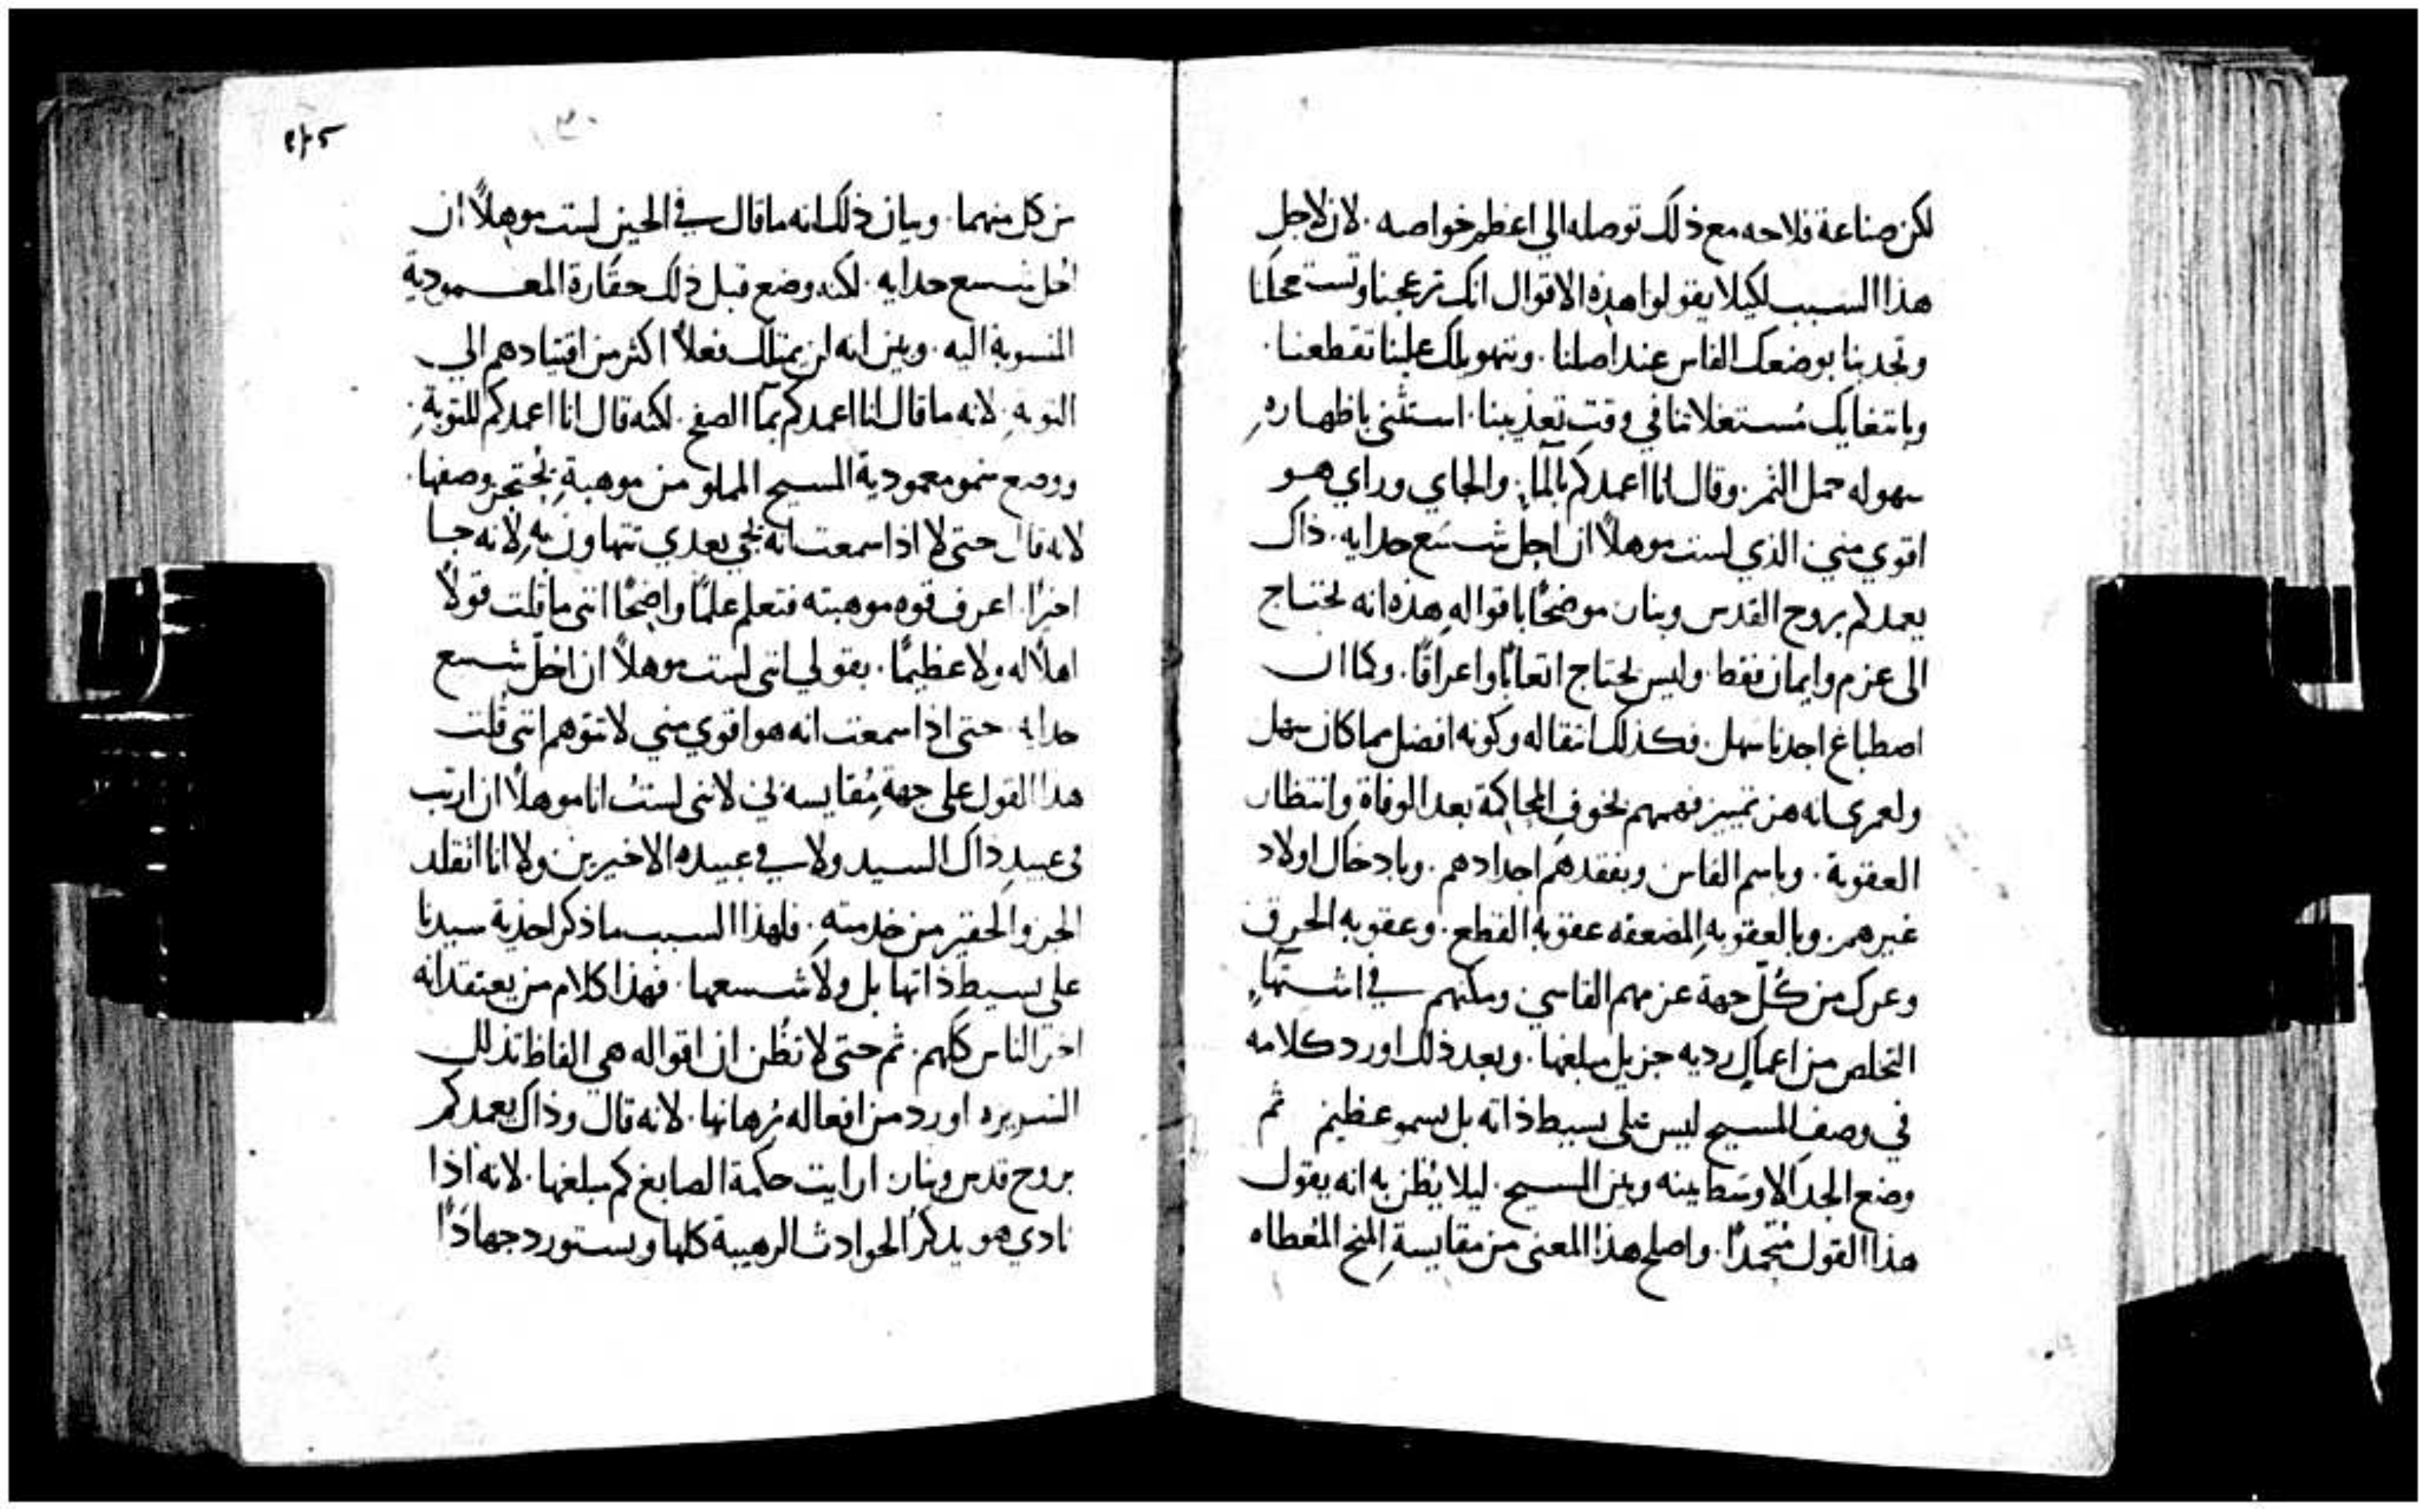 لكن صناعة فلاحه مع ذلك توصله الي اعظم خواصه . لان لاجل
هذا السبب لكيلا يقولوا هذه الاقوال انك تزعجنا وتستعجلنا
وتجدبنا بوضعك الفاس عند اصلنا . وبتهويلك علينا تقطعنا .
وبابتغايك مستغلاتنا في وقت تعذيبنا . استثني باظهاره
سهوله حمل الثمر . وقال انا اعمدكم بالمآ . والجاي وراي هو
اقوي مني . الذي لست موهلاً ان احل شسع حدايه . ذاك
يعمدكم بروح القدس وبنار . موضحًا باقواله هذه انه يحتاج
الى عزم وايمان فقط . وليس يحتاج اتعابًا واعراقًا . وكما ان
اصطباغ اجدنا سهل . فكذلك انتقاله وكونه افضل مما كان سهل
ولعمري انه هز تمييز فهمهم بخوف المحاكمة بعد الوفاة وانتظار
العقوبة . وباسم الفاس وبفقدهم اجدادهم . وبادخال اولاد
غيرهم . وبالعقوبه المضعفه عقوبه القطع . وعقوبه الحرق
وعرك من كل جهة عزمهم القاسي . ومكنهم في اشتهآ
التخلص من اعمال رديه جزيل مبلغها . وبعد ذلك اورد كلامه
في وصف المسيح ليس على بسيط ذاته بل بسمو عظيم ثم
وضع الحد الاوسط بينه وبين المسيح . ليلا يُظن به انه يقول
هذا القول متحمدًا . واصلح هذا المعنى من مقايسة المنح المُعطاه
من كل منهما . وبيان ذلك انه ما قال في الحين لست موهلاً ان
احل شسع حدايه . لكنه وضع قبل ذلك حقارة المعمودية
المنسوبة اليه . وبين انه لن يمتلك فعلاً اكثر من اقتيادهم الي
التوبه . لانه ما قال انا اعمدكم بمآ الصفح . لكنه قال انا اعمدكم للتوبة .
ووضع سمو معمودية المسيح المملو من موهبة يُحتجز وصفها .
لانه قال حتى لا اذا سمعت انه يجي بعدي تتهاون به لانه جا
اخيرًا . اعرف قوه موهبته فتعلم علمًا واضحًا انني ما قلت قولاً
اهلاً له ولا عظيمًا . بقولي انني لست موهلاً ان احل شسع
حدايه . حتى اذا سمعت انه هو اقوي مني لا تتوهم انني قلت
هذا القول على جهة مُقايسه لي . لانني لستُ انا موهلاً ان ارتب
في عبيد ذاك السيد ولا في عبيده الاخيرين . ولا انا اتقلد
الجزو الحقير من خدمته . فلهذا السبب ما ذكر احذية سيدنا
على بسيط ذاتها بل ولا شسعها . فهذا كلام من يعتقد انه
اخر الناس كلهم . ثم حتى لا تظُن ان اقواله هي الفاظ تذلل
السريره اورد من افعاله بُرهانها . لانه قال وذاك يعمدكم
بروح قدس وبنار . ارايت حكمة الصابغ كم مبلغها . لانه اذا
نادي هو يدكر الحوادث الرهيبة كلها ويستورد جهادًا